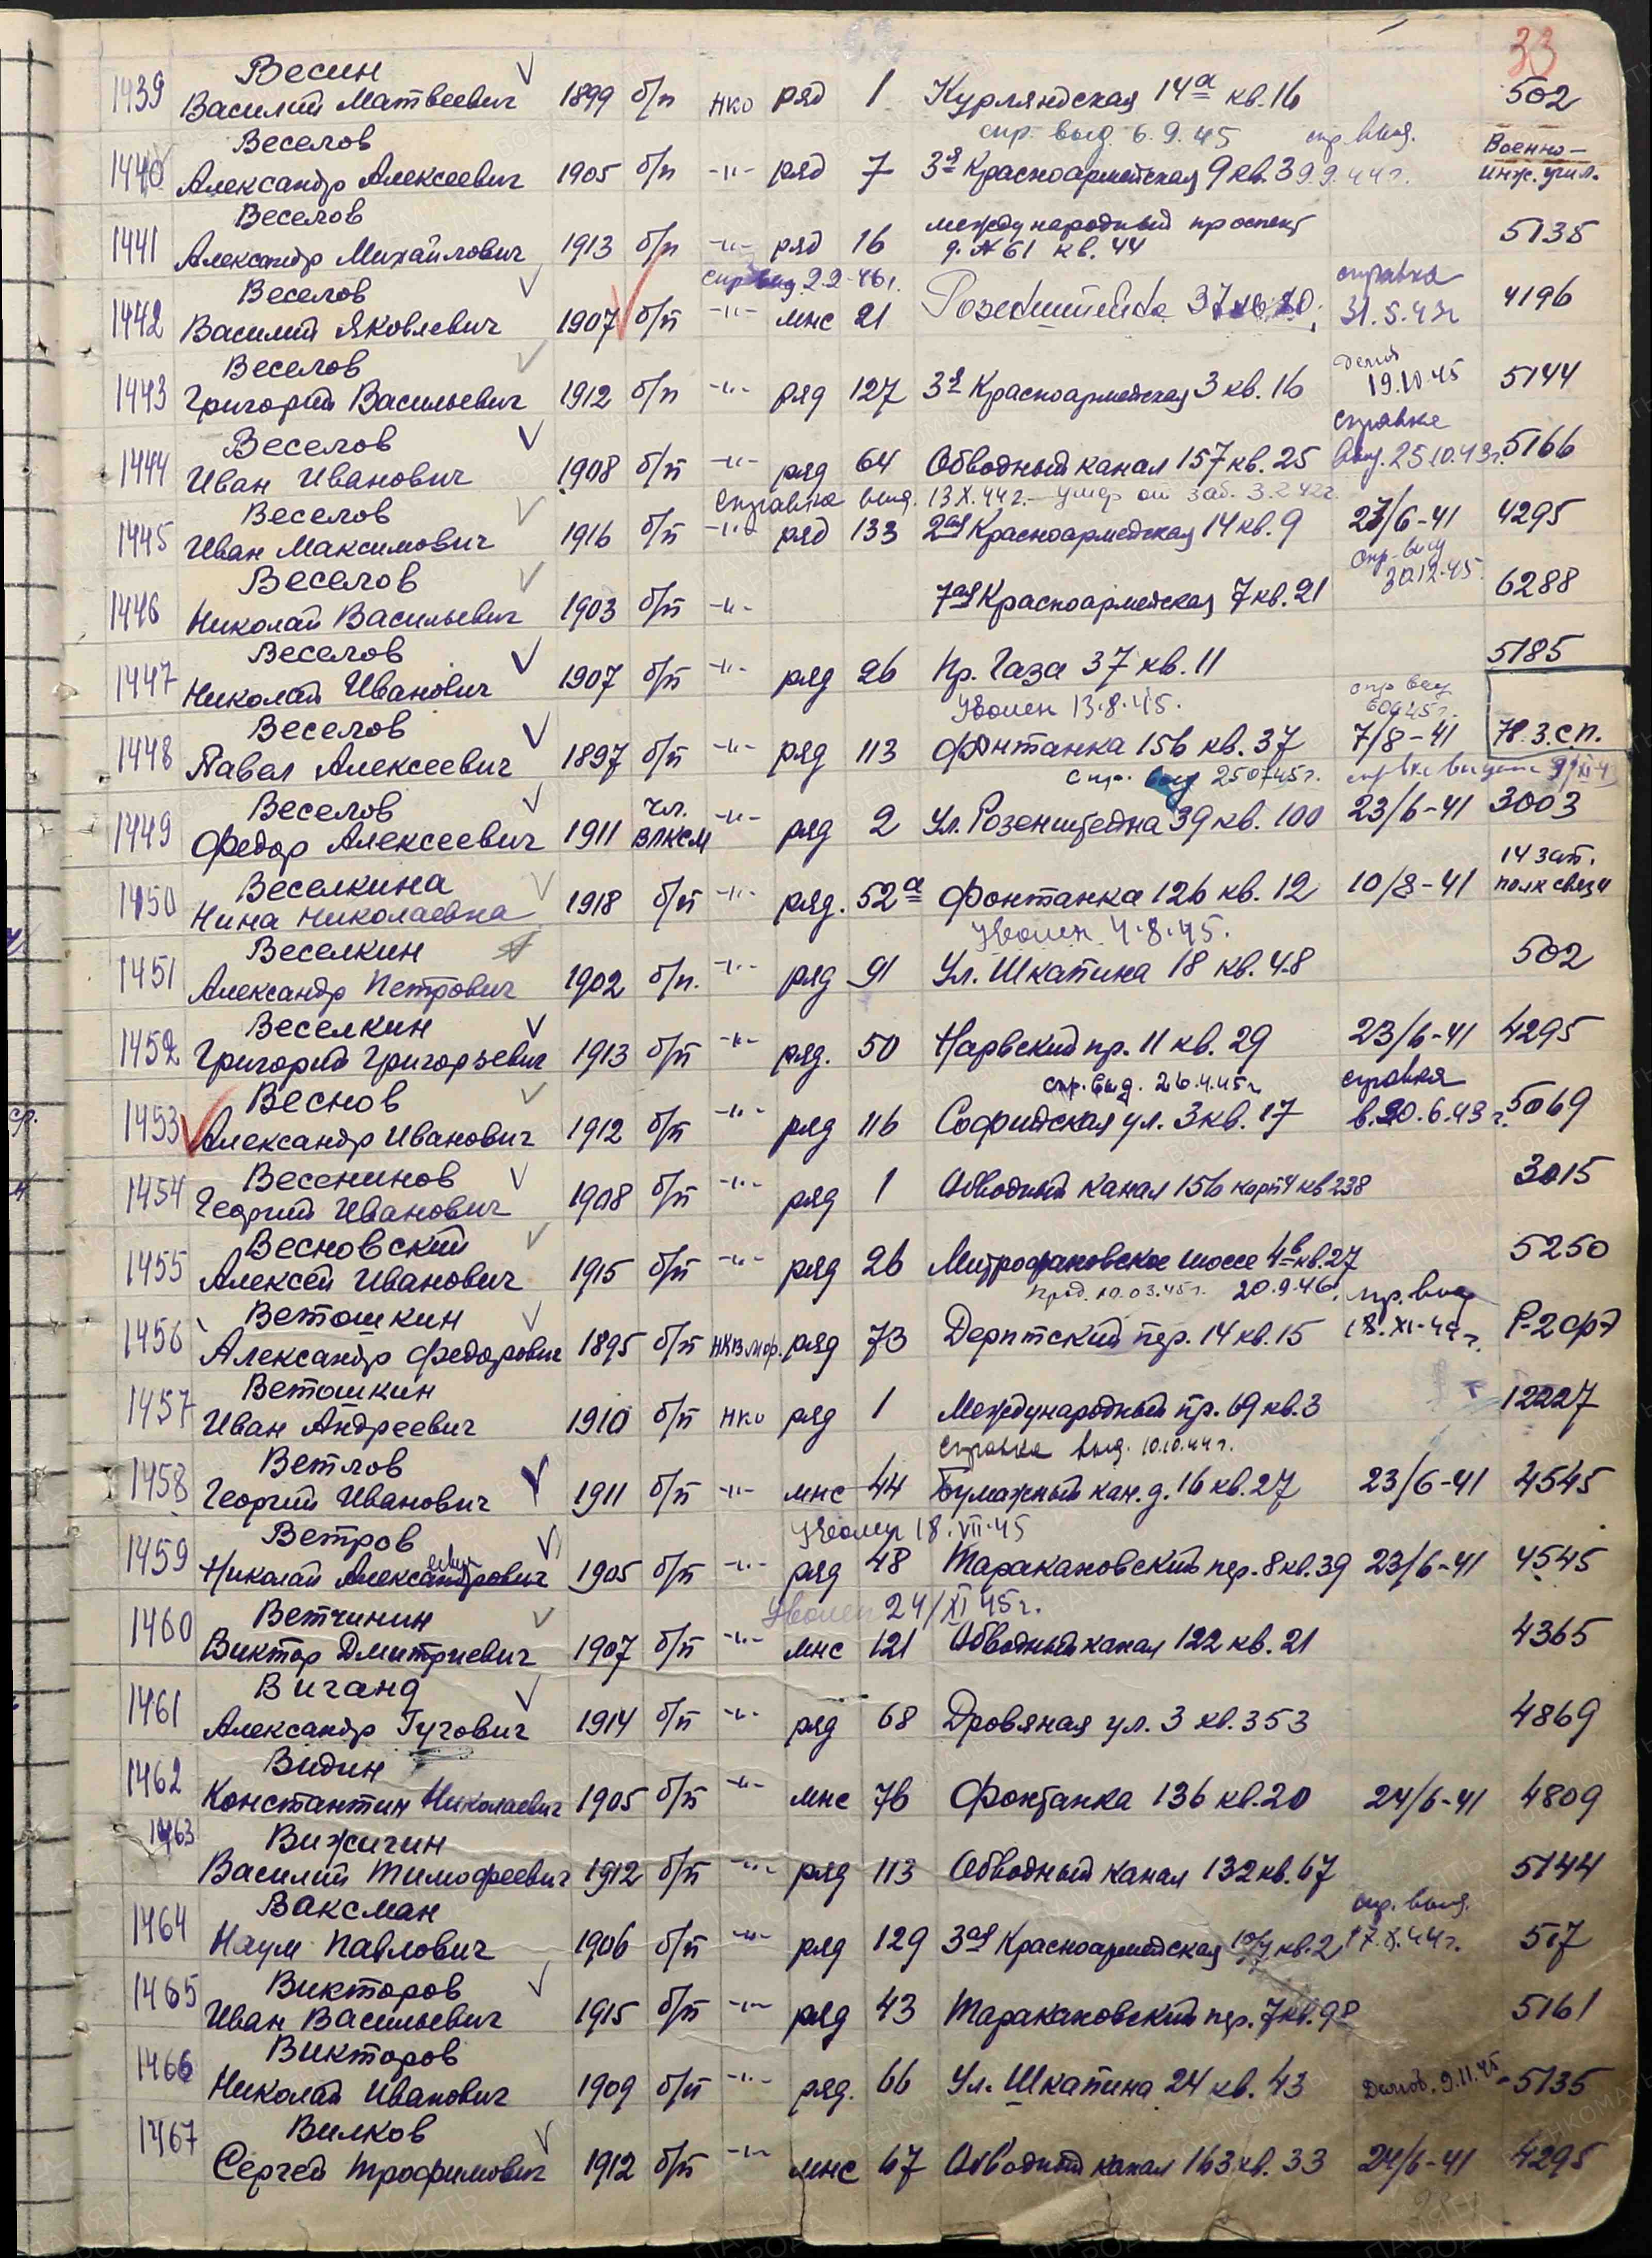 33
1439 Весин Василий Матвеевич 1899 б/п НКО ряд 1 Курляндская 14а кв. 16 502
спр. выд. 6.9.45 спр. выд.
1440 Веселов Александр Алексеевич 1905 б/п -"- ряд 7 3я Красноармейская 9 кв. 3 9.9.44г. Военно-инж. учил.
1441 Веселов Александр Михайлович 1913 б/п -"- ряд 16 международный проспект д. № 61 кв. 44 5135
спр выд. 2.2-46г. справка
1442 Веселов Василий Яковлевич 1907 б/п -"- мнс 21 Розенштейна 37 31.5.43г 4196
1443 Веселов Григорий Васильевич 1912 б/п -"- ряд 127 3я Красноармейская 3 кв. 16 19.10.45 5144
справка
1444 Веселов Иван Иванович 1908 б/п -"- ряд 64 Обводный канал 157 кв. 25 выд. 25.10.43г. 5166
Справка выд. 13.X.44г. - умер от заб. 3.2.42г.
1445 Веселов Иван Максимович 1916 б/п -"- ряд 133 2ая Красноармейская 14 кв. 9 23/6-41 4295
спр-выд 30.12.45.
1446 Веселов Николай Васильевич 1903 б/п -"- 7ая Красноармейская 7 кв. 21 6288
1447 Веселов Николай Иванович 1907 б/п -"- ряд 26 Пр. Газа 37 кв. 11 5185
Уволен 13.8.45. спр выд
1448 Веселов Павел Алексеевич 1897 б/п -"- ряд 113 Фонтанка 156 кв. 37 7/8-41 78 З.С.П.
спр. выд 25.07.45г.
1449 Веселов Федор Алексеевич 1911 чл. ВЛКСМ -"- ряд 2 Ул. Розенштейна 39 кв. 100 23/6-41 3003
1450 Веселкина Нина Николаевна 1918 б/п -"- ряд. 52а Фонтанка 126 кв. 12 10/8-41 14 зап. полк связи
Уволен 4.8.45.
1451 Веселкин Александр Петрович 1902 б/п. -"- ряд 91 Ул. Шкапина 18 кв. 48 502
1452 Веселкин Григорий Григорьевич 1913 б/п -"- ряд. 50 Нарвский пр. 11 кв. 29 23/6-41 4295
спр. выд. 26.4.45г справка
1453 Веснов Александр Иванович 1912 б/п -"- ряд 116 Софийская ул. 3 кв. 17 в. 20.6.43г. 5069
1454 Весенинов Георгий Иванович 1908 б/п -"- ряд 1 Обводный канал 156 корп 4 кв 238 3015
1455 Весновский Алексей Иванович 1915 б/п -"- ряд 26 Митрофановское шоссе 4в кв. 27 5250
прод. 10.03.45г. 20.9.46. спр. выд
1456 Ветошкин Александр Федорович 1895 б/п НКВмф. ряд 73 Дерптский пер. 14 кв. 15 18.XI-44г. Р-2 срэ
1457 Ветошкин Иван Андреевич 1910 б/п НКО ряд 1 Международный пр. 69 кв. 3 12227
Справка выд. 10.10.44г.
1458 Ветлов Георгий Иванович 1911 б/п -"- мнс 44 Бумажный кан. д. 16 кв. 27 23/6-41 4545
Уволен 18.VII.45
1459 Ветров Николай Александрович 1905 б/п -"- ряд 48 Таракановский пер. 8 кв. 39 23/6-41 4545
Уволен 24/XI 45г.
1460 Ветчинин Виктор Дмитриевич 1907 б/п -"- мнс 121 Обводный канал 122 кв. 21 4365
1461 Виганд Александр Гугович 1914 б/п -"- ряд 68 Дровяная ул. 3 кв. 353 4869
1462 Видин Константин Николаевич 1905 б/п -"- мнс 76 Фонтанка 136 кв. 20 24/6-41 4809
1463 Вижигин Василий Тимофеевич 1912 б/п -"- ряд 113 Обводный канал 132 кв. 67 5144
спр. выд.
1464 Ваксман Наум Павлович 1906 б/п -"- ряд 129 3ая Красноармейская кв. 2 17.X.44г. 517
1465 Викторов Иван Васильевич 1915 б/п -"- ряд 43 Таракановский пер. 7 кв. 98 5161
1466 Викторов Николай Иванович 1909 б/п -"- ряд. 66 Ул. Шкапина 24 кв. 43 Демоб. 9.11.45 5135
1467 Вилков Сергей Трофимович 1912 б/п -"- мнс 67 Обводный канал 163 кв. 33 24/6-41 4295